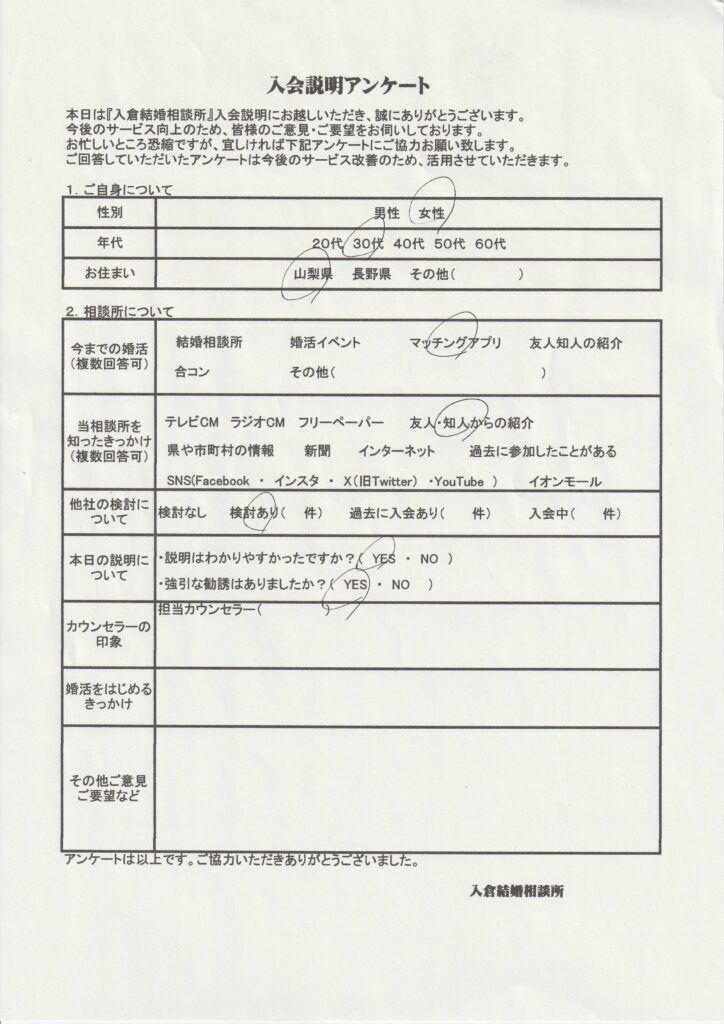 入会説明アンケート
本日は『入倉結婚相談所』入会説明にお越しいただき、誠にありがとうございます。
今後のサービス向上のため、皆様のご意見・ご要望をお伺いしております。
お忙しいところ恐縮ですが、宜しければ下記アンケートにご協力お願い致します。
ご回答していただいたアンケートは今後のサービス改善のため、活用させていただきます。
1．ご自身について
性別 男性 女性
年代 20代 30代 40代 50代 60代
お住まい 山梨県 長野県 その他( )
2．相談所について
今までの婚活
(複数回答可)
結婚相談所 婚活イベント マッチングアプリ 友人知人の紹介
合コン その他( )
当相談所を
知ったきっかけ
(複数回答可)
テレビCM ラジオCM フリーペーパー 友人・知人からの紹介
県や市町村の情報 新聞 インターネット 過去に参加したことがある
SNS(Facebook ・ インスタ ・ X(旧Twitter) ・YouTube ) イオンモール
他社の検討に
ついて
検討なし 検討あり( 件) 過去に入会あり( 件) 入会中( 件)
本日の説明に
ついて
・説明はわかりやすかったですか？( YES ・ NO )
・強引な勧誘はありましたか？( YES ・ NO )
カウンセラーの
印象
担当カウンセラー( )
婚活をはじめる
きっかけ
その他ご意見
ご要望など
アンケートは以上です。ご協力いただきありがとうございました。
入倉結婚相談所